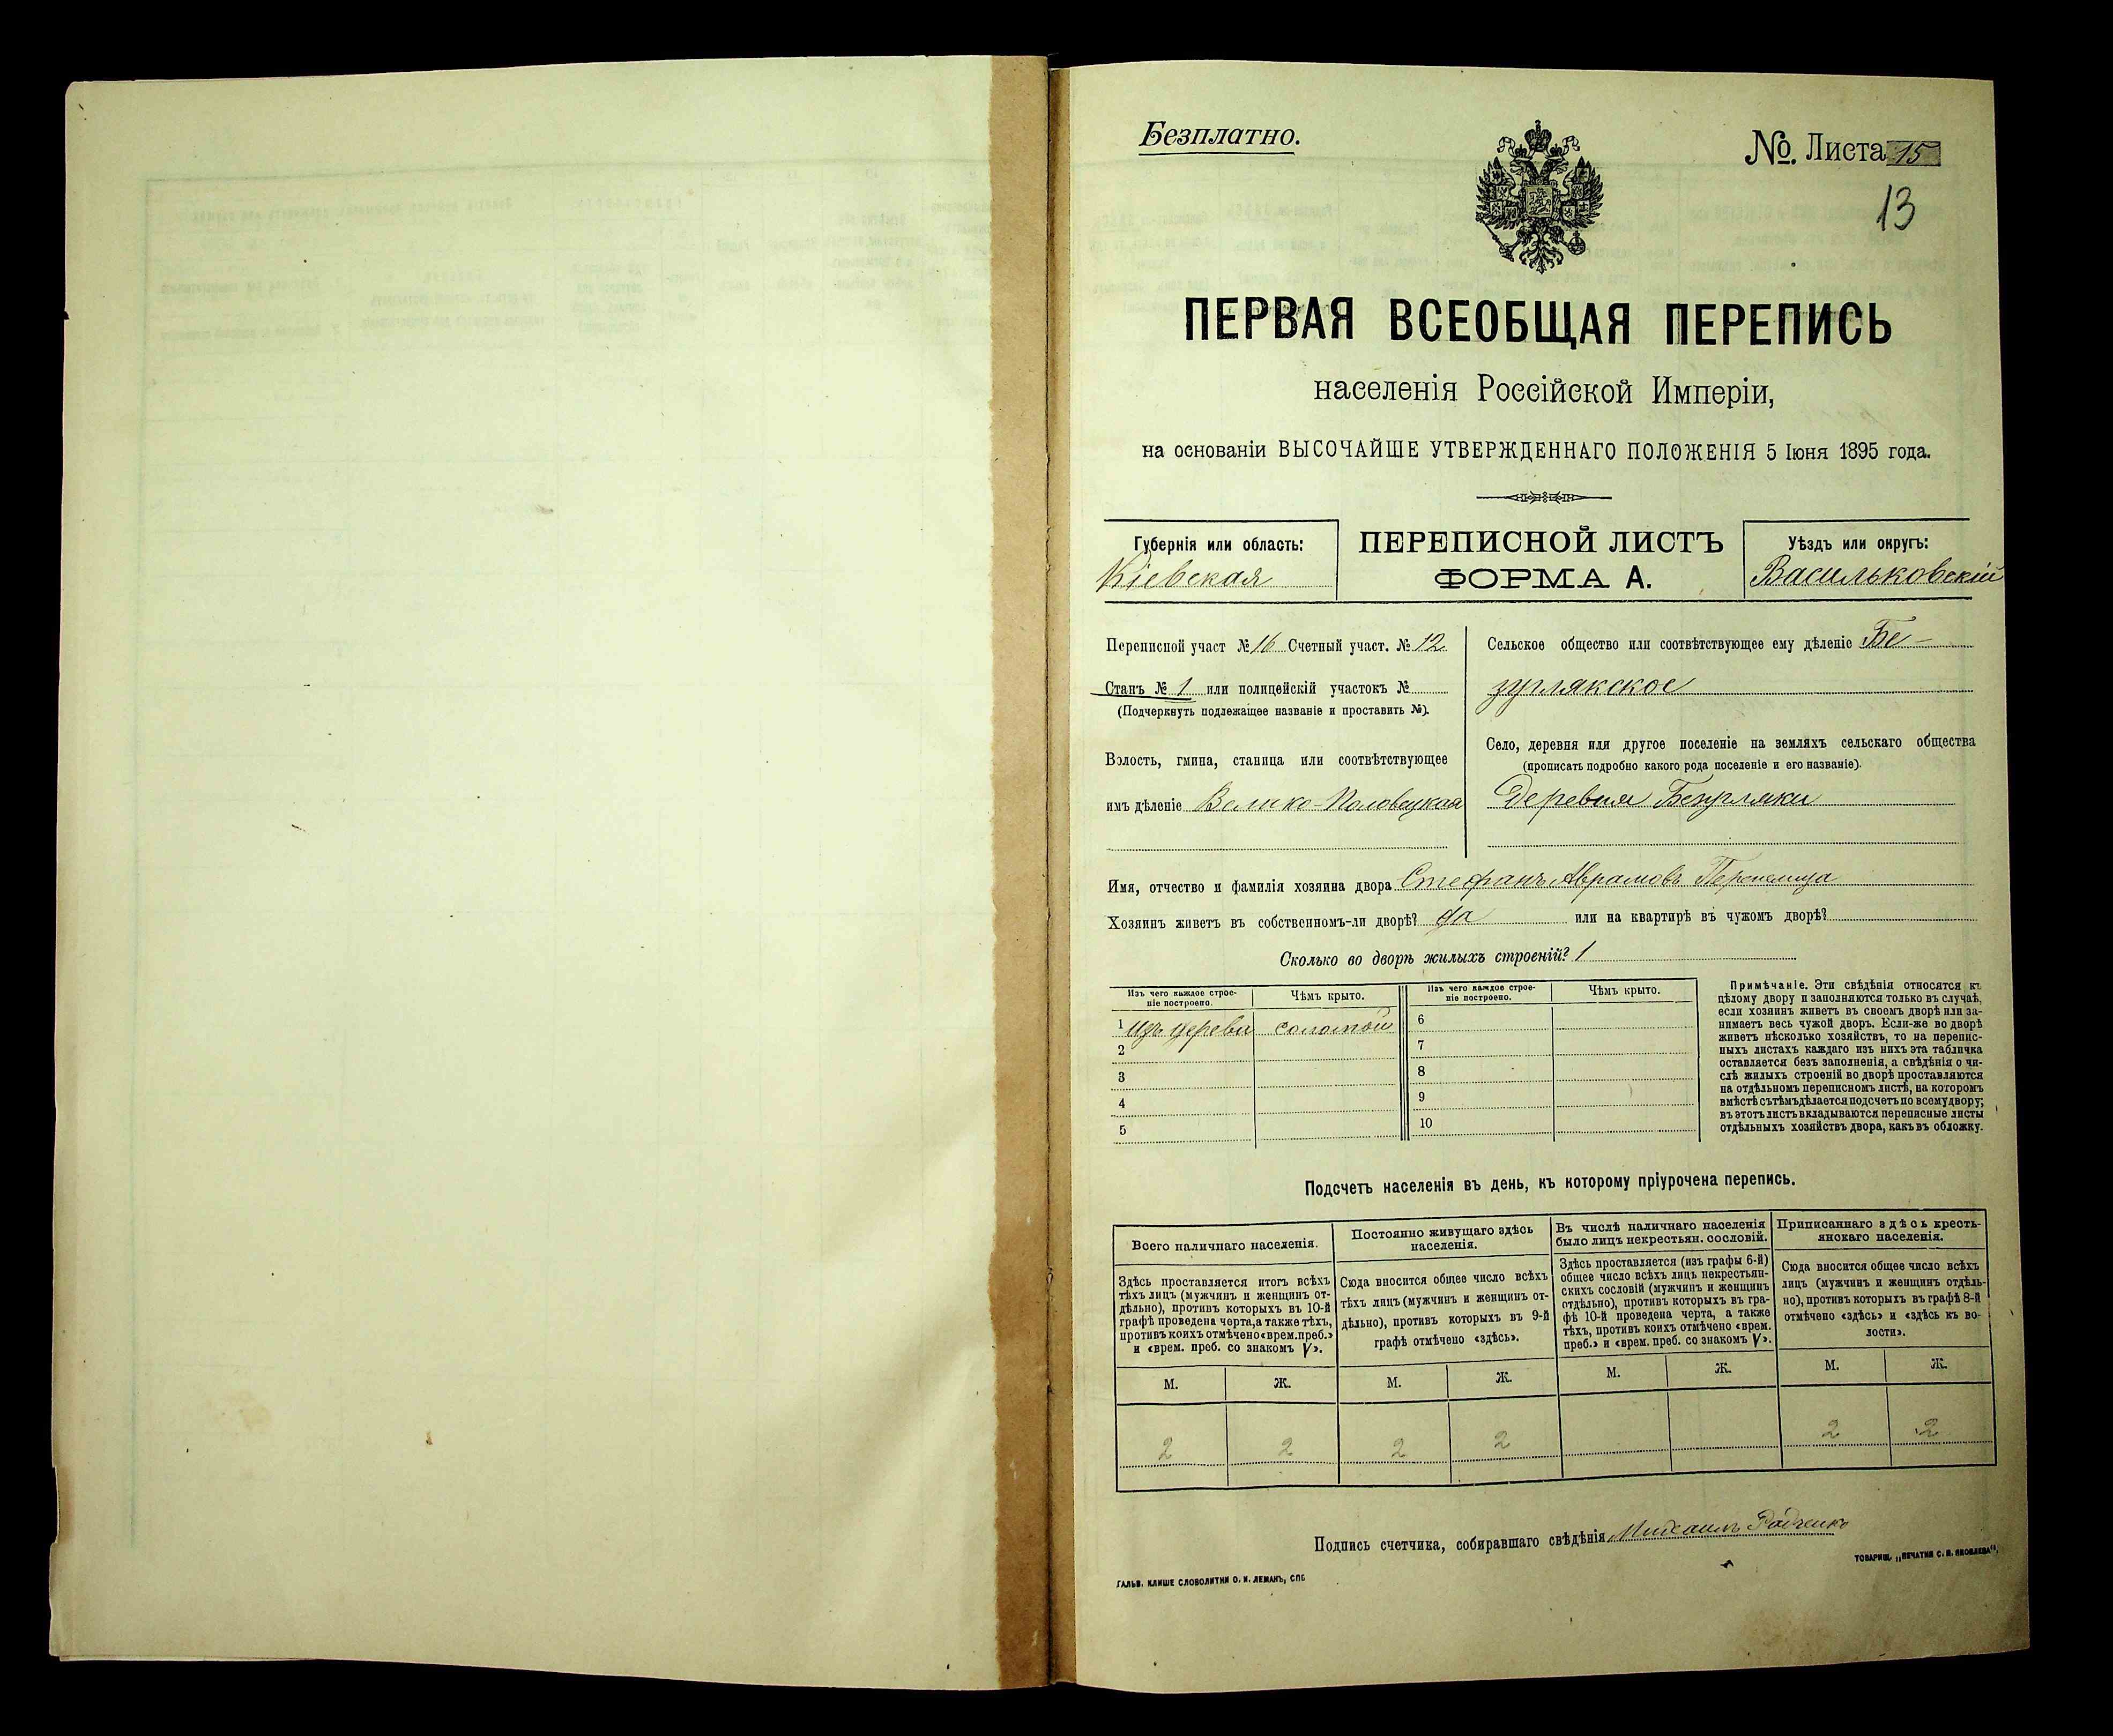 Безплатно.
№. Листа 15
13
ПЕРВАЯ ВСЕОБЩАЯ ПЕРЕПИСЬ
населенія Россійской Имперіи,
на основаніи ВЫСОЧАЙШЕ УТВЕРЖДЕННАГО ПОЛОЖЕНІЯ 5 Іюня 1895 года.
Губернія или область:
Кіевская
ПЕРЕПИСНОЙ ЛИСТЪ
ФОРМА А.
Уѣздъ или округъ:
Васильковскій
Переписной участ № 16 Счетный участ. № 12
Станъ № 1 или полицейскій участокъ №
(Подчеркнуть подлежащее названіе и проставить №).
Волость, гмина, станица или соотвѣтствующее
имъ дѣленіе Велико-Половецкая
Сельское общество или соотвѣтствующее ему дѣленіе Бе-
зуглякское
Село, деревня или другое поселеніе на земляхъ сельскаго общества
(прописать подробно какого рода поселеніе и его названіе).
Деревня Безугляки
Имя, отчество и фамилія хозяина двора Стефанъ Аврамовъ Перепелица
Хозяинъ живетъ въ собственномъ-ли дворѣ? да или на квартирѣ въ чужомъ дворѣ?
Сколько во дворѣ жилыхъ строеній? 1
Изъ чего каждое строе-
ніе построено.
Чѣмъ крыто.
Изъ чего каждое строе-
ніе построено.
Чѣмъ крыто.
1 Изъ дерева соломой
2
3
4
5
6
7
8
9
10
Примѣчаніе. Эти свѣдѣнія относятся къ
цѣлому двору и заполняются только въ случаѣ,
если хозяинъ живетъ въ своемъ дворѣ или за-
нимаетъ весь чужой дворъ. Если-же во дворѣ
живетъ нѣсколько хозяйствъ, то на перепис-
ныхъ листахъ каждаго изъ нихъ эта табличка
оставляется безъ заполненія, а свѣдѣнія о чи-
слѣ жилыхъ строеній во дворѣ проставляются
на отдѣльномъ переписномъ листѣ, на которомъ
вмѣстѣ съ тѣмъ дѣлается подсчетъ по всему двору;
въ этотъ листъ вкладываются переписные листы
отдѣльныхъ хозяйствъ двора, какъ въ обложку.
Подсчетъ населенія въ день, къ которому пріурочена перепись.
Всего наличнаго населенія.
Здѣсь проставляется итогъ всѣхъ
тѣхъ лицъ (мужчинъ и женщинъ от-
дѣльно), противъ которыхъ въ 10-й
графѣ проведена черта, а также тѣхъ,
противъ коихъ отмѣчено «врем. преб.»
и «врем. преб. со знакомъ V».
Постоянно живущаго здѣсь
населенія.
Сюда вносится общее число всѣхъ
тѣхъ лицъ (мужчинъ и женщинъ от-
дѣльно), противъ которыхъ въ 9-й
графѣ отмѣчено «здѣсь».
Въ числѣ наличнаго населенія
было лицъ некрестьян. сословій.
Здѣсь проставляется (изъ графы 6-й)
общее число всѣхъ лицъ некрестьян-
скихъ сословій (мужчинъ и женщинъ
отдѣльно), противъ которыхъ въ гра-
фѣ 10-й проведена черта, а также
тѣхъ, противъ коихъ отмѣчено «врем.
преб.» и «врем. преб. со знакомъ V».
Приписаннаго здѣсь кресть-
янскаго населенія.
Сюда вносится общее число всѣхъ
лицъ (мужчинъ и женщинъ отдѣль-
но), противъ которыхъ въ графѣ 8-й
отмѣчено «здѣсь» и «здѣсь къ во-
лости».
М. Ж. М. Ж. М. Ж. М. Ж.
2 2 2 2 2 2
Подпись счетчика, собиравшаго свѣдѣнія Михаилъ Радченко
ГАЛЬВ. КЛИШЕ СЛОВОЛИТНИ О. И. ЛЕМАНЪ, СПБ
ТОВАРИЩ. „ПЕЧАТНЯ С. П. ЯКОВЛЕВА".